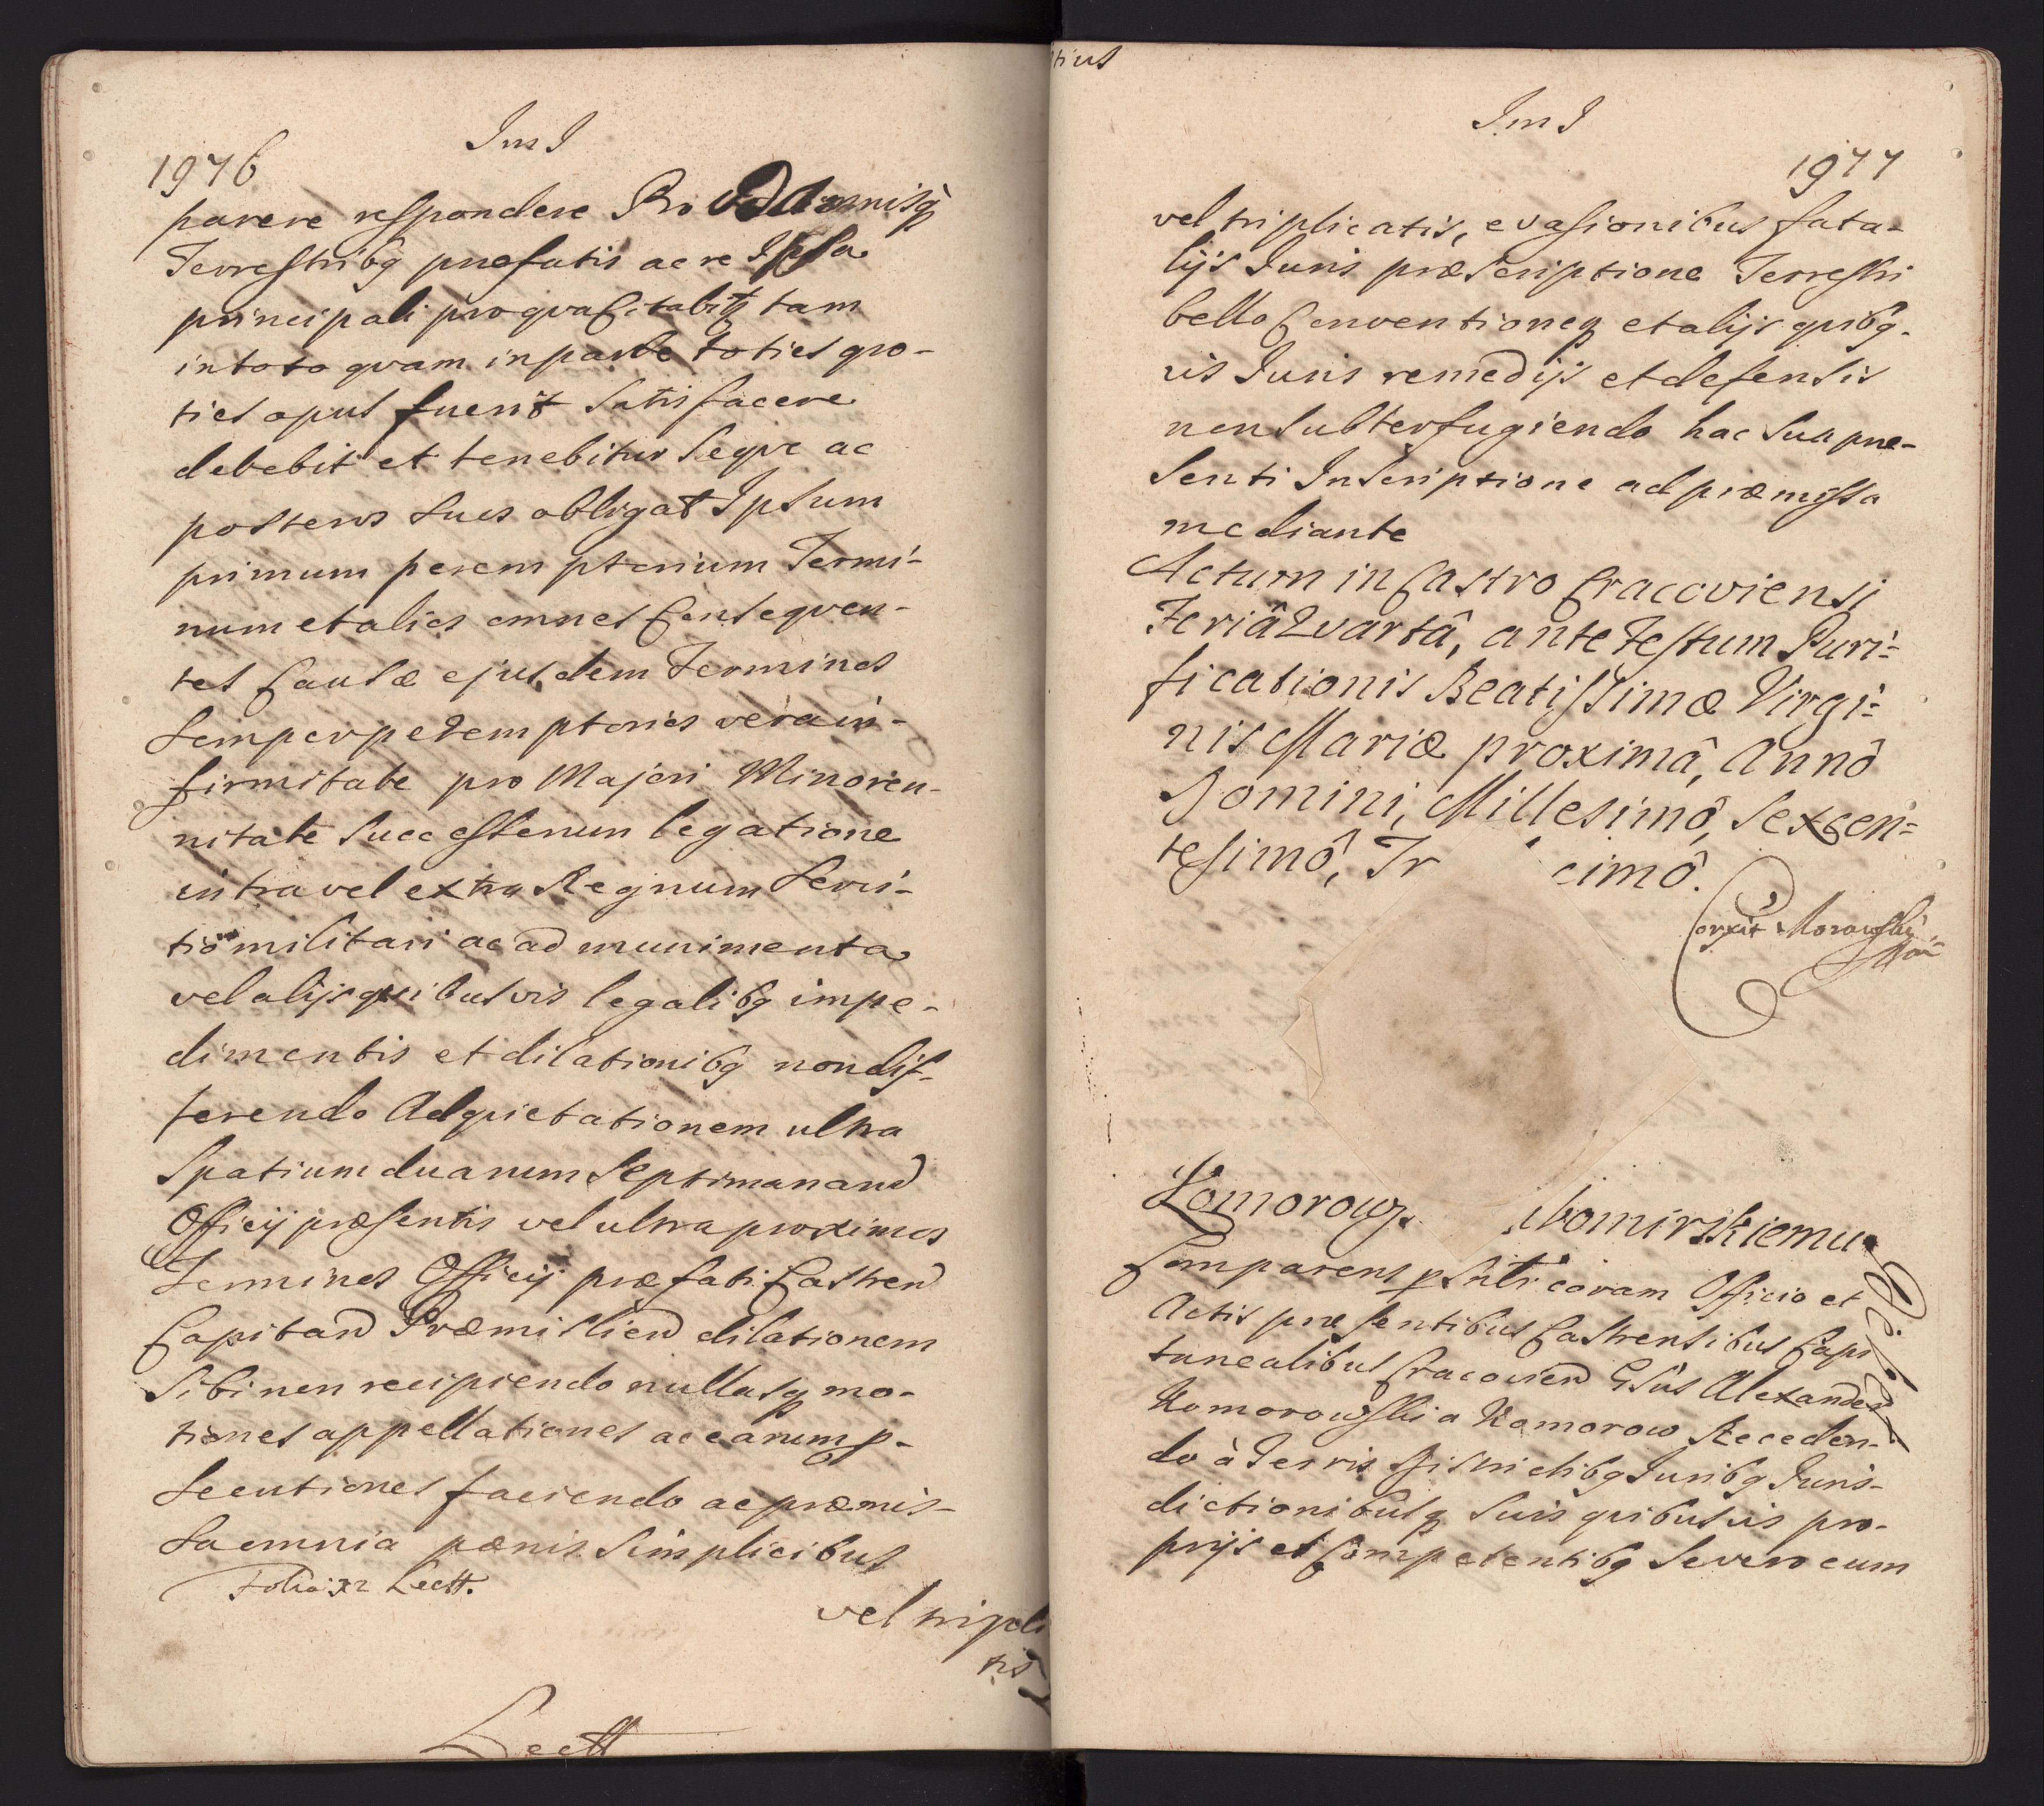 Im I
1976
parere respondere Pro Vadiomisq
Terrestribq præfatis ac re Ipsa
principali pro qva Citabitq tam
in toto qvam in parte toties quo-
ties opus fuerit satisfacere
debebit et tenebitur seqve ac
posteros suos obligat Ipsum
primum peremptorium Termi-
num et alios omnes Conseqven-
tes Causæ ejusdem Terminos
semper peremptorios vera in-
firmitate pro Majori Minoren-
nitate successorum legatione
intra vel extra Regnum servi-
tio militari ac ad munimenta
vel alijs quibusvis legalibq impe-
dimentis et dilationibq non dif-
ferendo Adquietationem ultra
spatium duarum septimanarum
Officij præsentis vel ultra proximos
Terminos Officij præfati Castren
Capitan Præmislien dilationem
sibi non recipiendo nullasq mo-
tiones appellationes ac earum p-
secutiones faciendo ac præmis-
sa omnia pænis simplicibus
Folia Lectt.
vel tripli
tis
Lectt
tius
Im I
1977
vel triplicatis, evasionibus fata-
lijs Juris præscriptione Terrestri
bello Conventioneq et alijs quibq-
vis Juris remedijs et defensis
non subterfugiendo hac sua præ-
senti Inscriptione ad præmissa
mediante
Actum in Castro Cracoviensi
Feriâ Qvartâ, ante Festum Puri=
ficationis Beatissimæ Virgi=
nis Mariæ proximâ, Annô
Domini, Millesimô, Sexcen=
tesimô, Tr cimô.
Correxit Morawski
Komorow. ubomirskiemu
Comparens psntr coram Officio et
Actis præsentibus Castrensibus Capi
tanealibus Cracovien Gsus Alexander
Komorowski a Komorow Receden-
do à Terris Districtibq Juribq Juris-
dictionibusq suis quibusvis pro-
prijs et Competentibq se vero cum